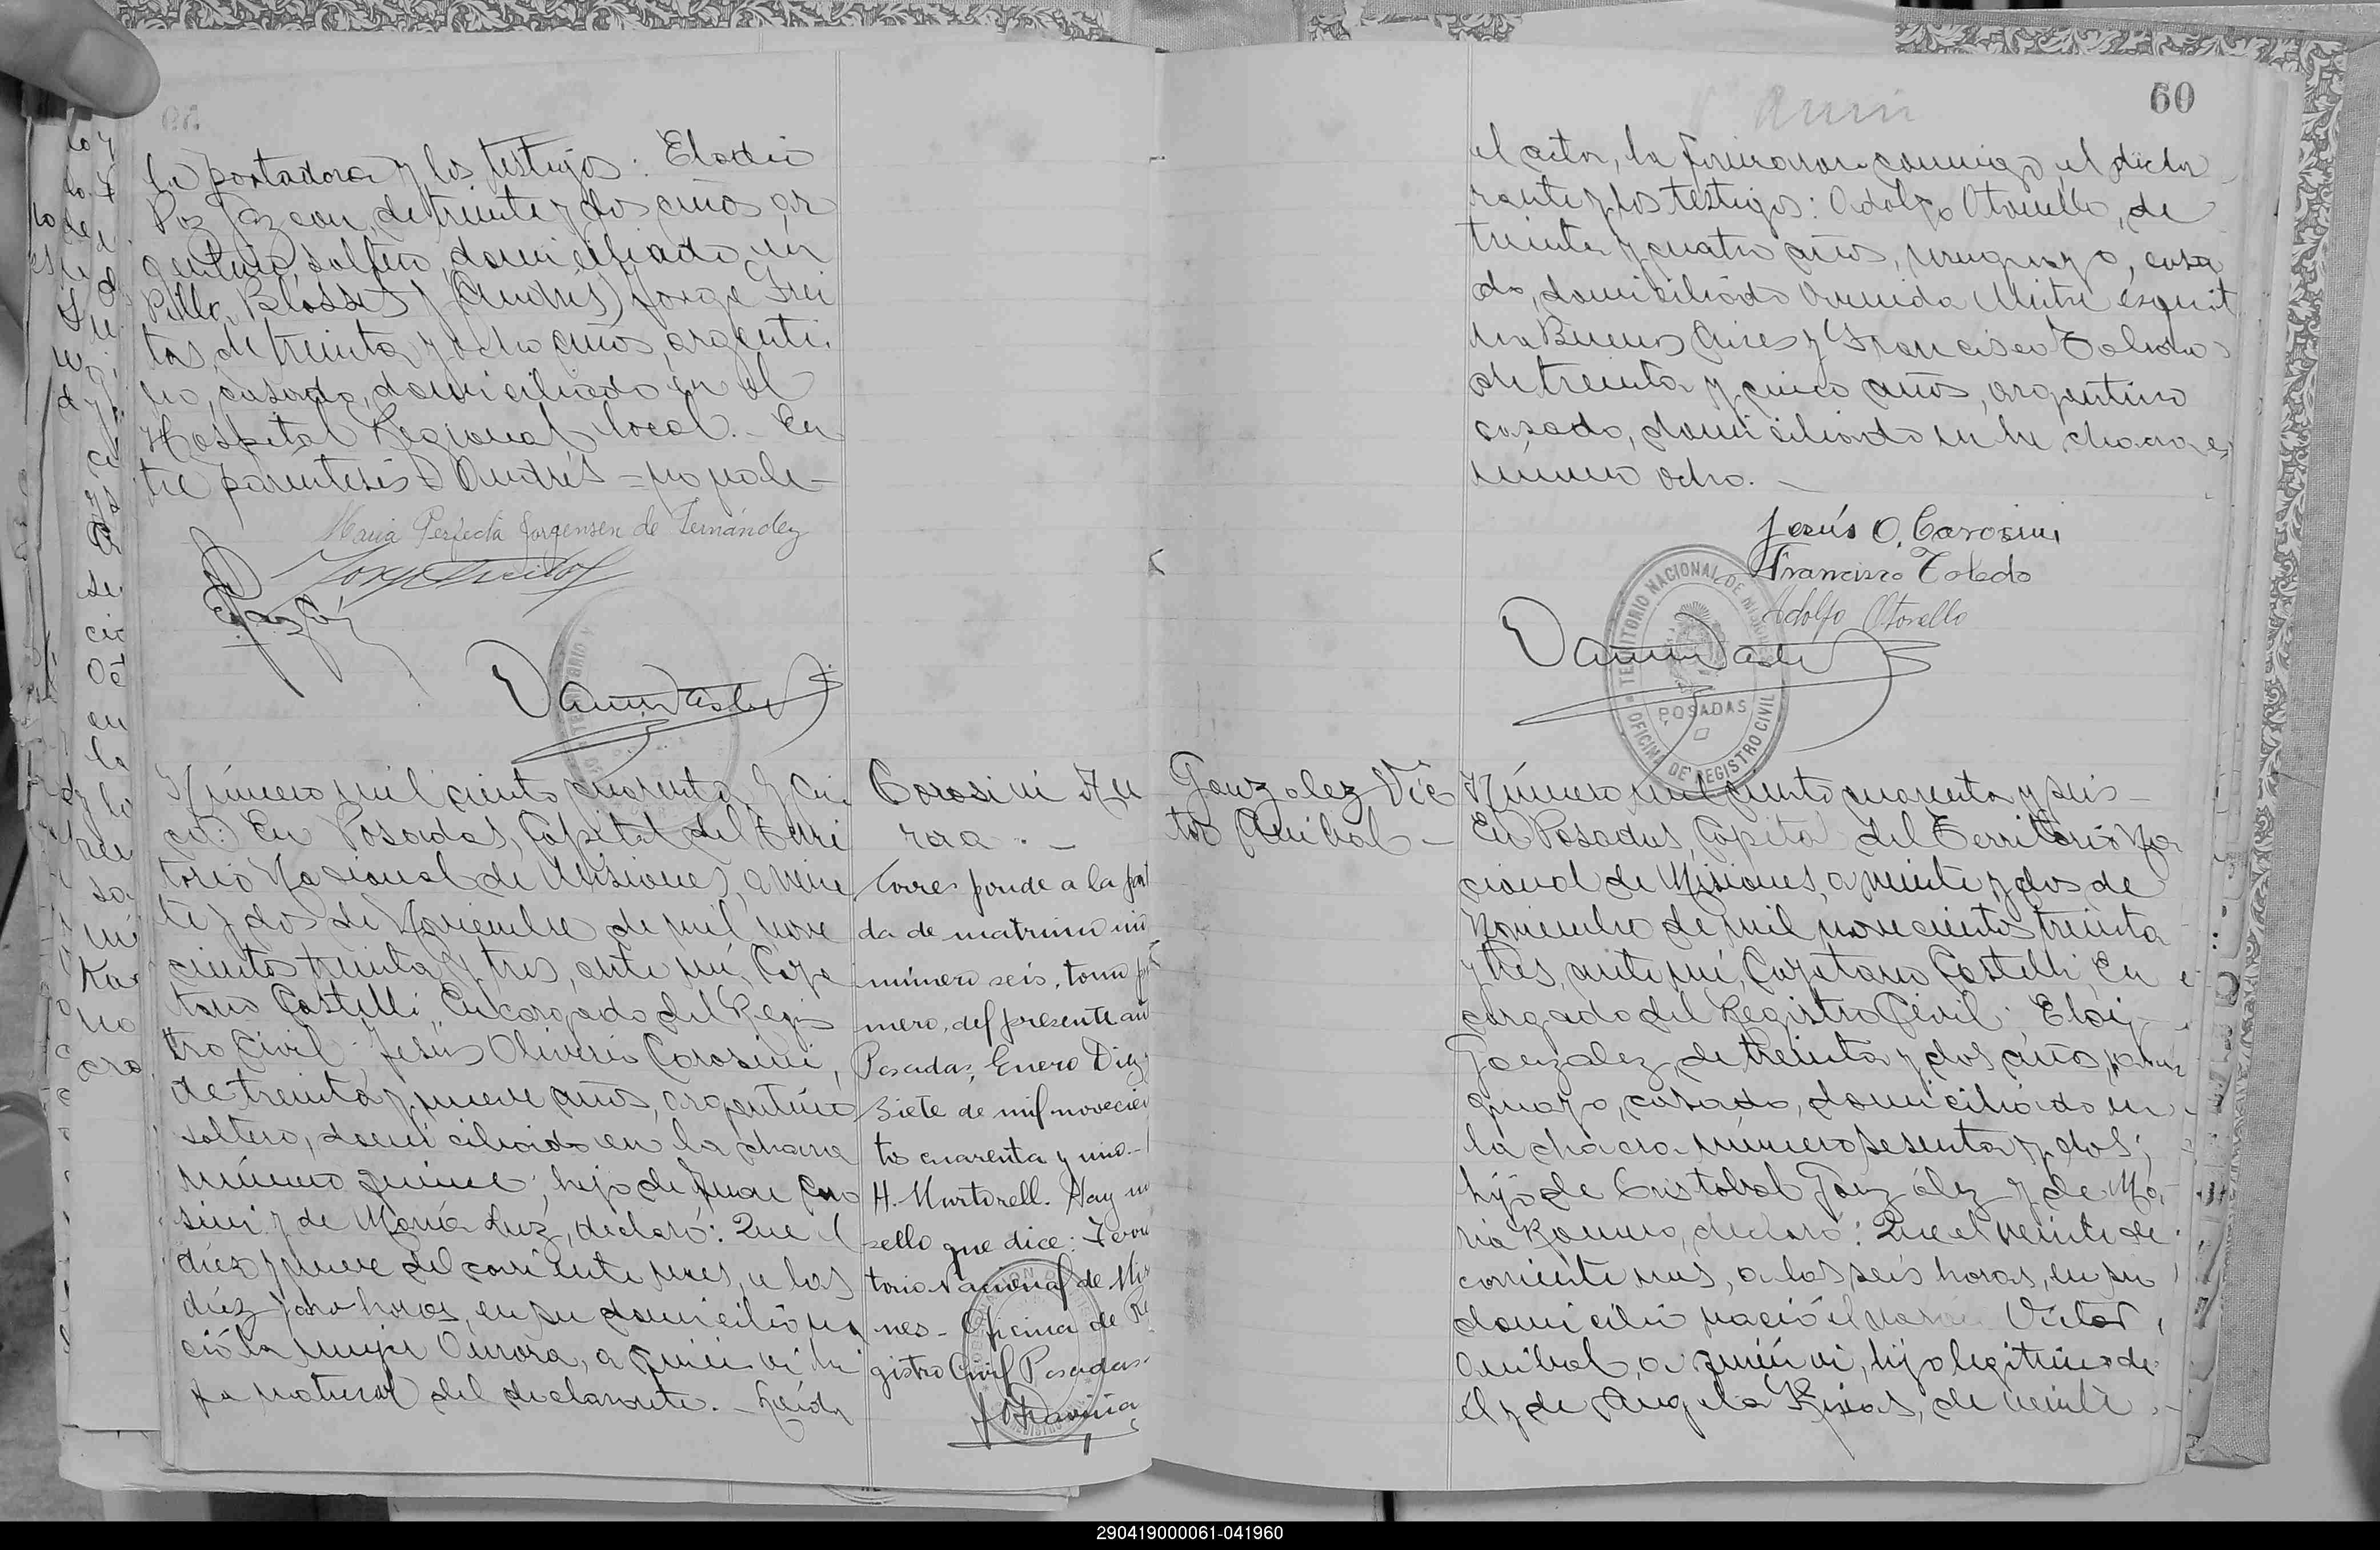 la portadora y los testigos: Eladio
Paz, de treinta y dos años ar
gentino, soltero, domiciliado en
Villa Blosset y (Andrés) Jorge Frei
tas, de treinta y ocho años, argenti
no, casado, domiciliado en el
Hospital Regional local. - En
tre paréntesis = Andrés = no vale -
Maria Perfecta Jorgensen de Fernández
Número mil ciento cuarenta y cin
co: En Posadas, Capital del Terri
torio Nacional de Misiones, a vein
te y dos de Noviembre de mil nove
cientos treinta y tres, ante mí, Caye
tano Castelli, Encargado del Regis
tro Civil; Jesús Oliverio Carosini,
de treinta y nueve años, argentino
soltero, domiciliado en la chacra
número quince; hijo de Juan Caro
sini y de María Luz, declaró: Que el
diez y nueve del corriente mes, a las
diez y ocho horas, en su domicilio na
ció la mujer Aurora, a quien vi hi
ja natural del declarante. - Leída
Carosini Au
rora. -
Corresponde a la part
da de matrimonio
número seis, tomo pri
mero, del presente año
Posadas, Enero Diez y
siete de mil novecien
tos cuarenta y uno. -
H. Martorell. Hay un
sello que dice: Terri
torio Nacional de Misio
nes - Oficina de Re
gistro Civil Posadas -
60
el acta, la firmaron conmigo, el decla
rante y los testigos: Adolfo Otonello, de
treinta y cuatro años, uruguayo, casa
do, domiciliado Avenida Mitre esqui
na Buenos Aires y Francisco Toledo
de treinta y cinco años, argentino
casado, domiciliado en la chacra
número ocho. -
Jesús O. Carosini
Francisco Toledo
Adolfo Otonello
TERRITORIO NACIONAL DE MISIONES
POSADAS
OFICINA DE REGISTRO CIVIL
Gonzalez Víc
tor Anibal -
Número mil ciento cuarenta y seis -
En Posadas, Capital del Territorio Na
cional de Misiones, a veinte y dos de
Noviembre de mil novecientos treinta
y tres, ante mí, Cayetano Castelli, En
cargado del Registro Civil; Eloi
Gonzalez, de treinta y dos años, para
guayo, casado, domiciliado en
la chacra número sesenta y dos;
hijo de Cristobal González y de Ma
ria Romero, declaró: Que el veinte de
corriente mes, a las seis horas, en su
domicilio nació el varón Victor
Anibal, a quién vi, hijo legitimo de
él y de Angela Rivas, de veinte
290419000061-041960